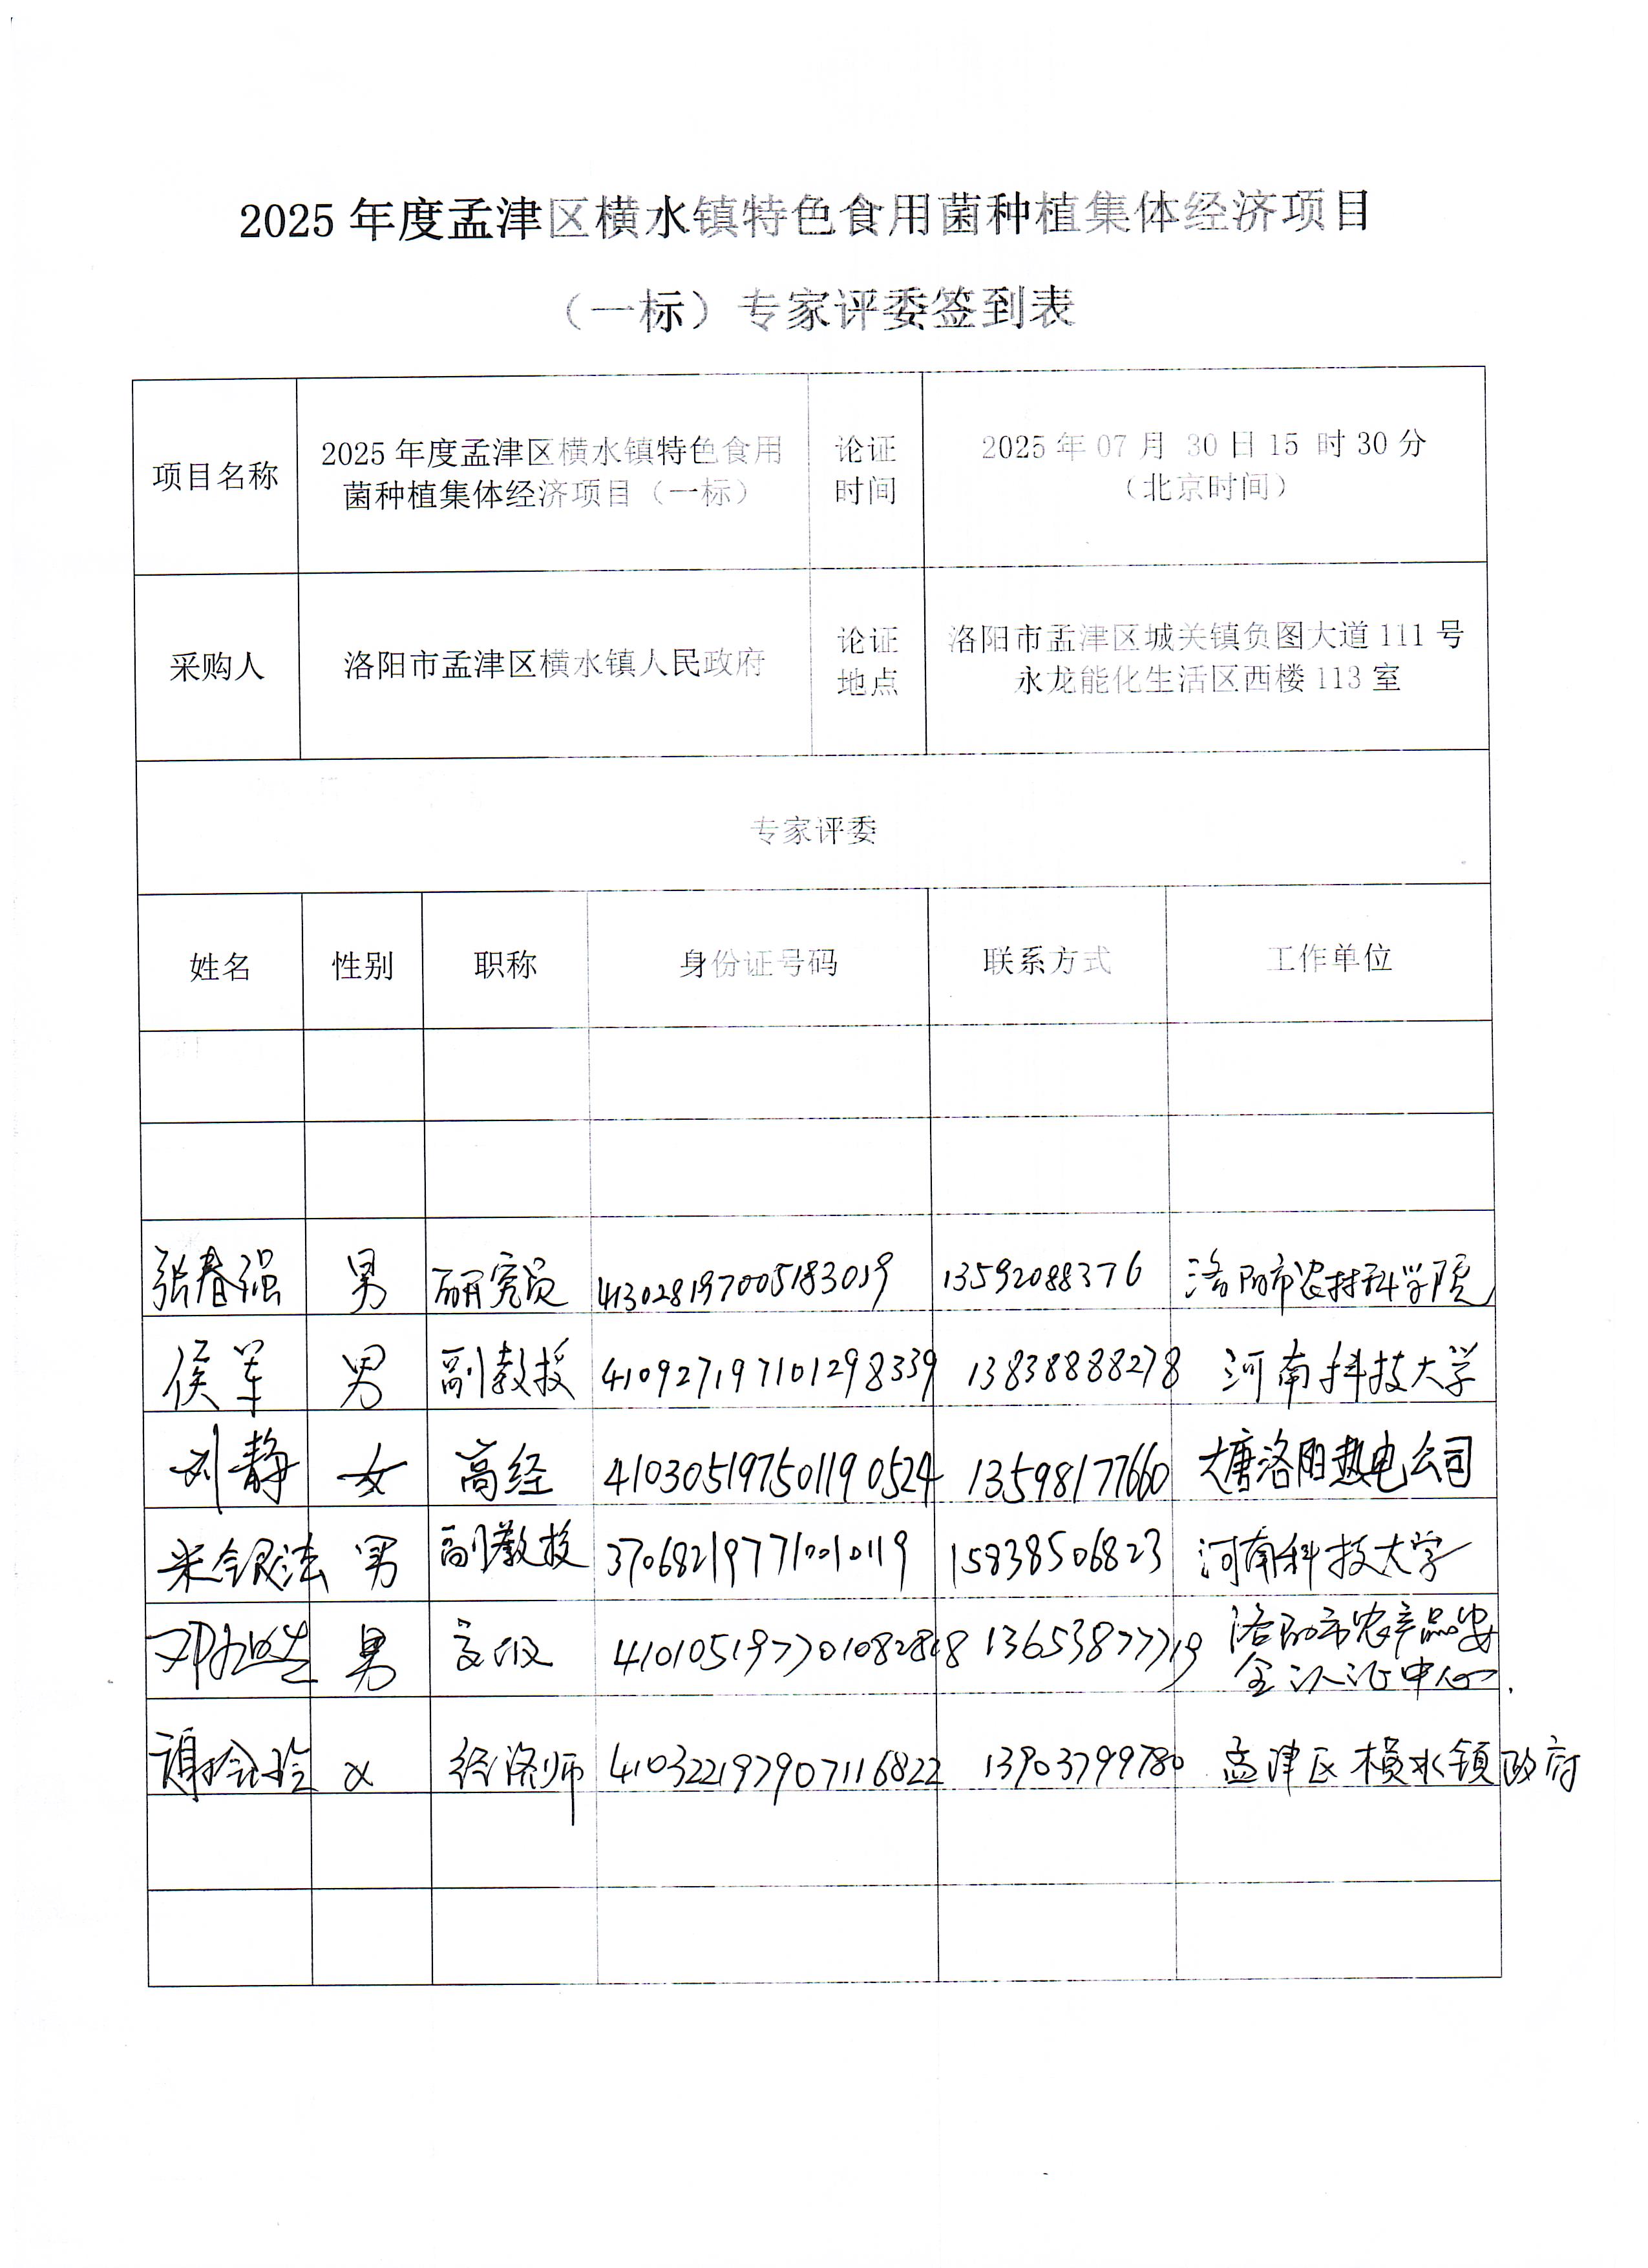 2025年度孟津区横水镇特色食用菌种植集体经济项目
（一标）专家评委签到表
项目名称
2025年度孟津区横水镇特色食用
菌种植集体经济项目（一标）
论证
时间
2025年07月 30日15 时30分
（北京时间）
采购人
洛阳市孟津区横水镇人民政府
论证
地点
洛阳市孟津区城关镇负图大道111号
永龙能化生活区西楼113室
专家评委
姓名 性别 职称 身份证号码 联系方式 工作单位
张春强 男 研究员 413028197005183019 13592088376 洛阳市农林科学院
侯军 男 副教授 410927197101298339 13838888278 河南科技大学
刘静 女 高经 410305197501190524 13598177660 大唐洛阳热电公司
米银法 男 副教授 370682197710010119 15838506823 河南科技大学
男 410105197701082818 13653877719 洛阳市农产品安
全认证中心
谢 女 经济师 410322197907116822 13903799780 孟津区横水镇政府